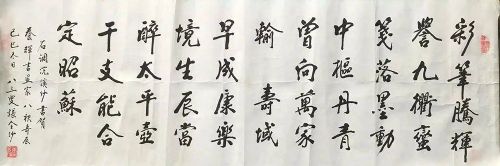 彩筆騰輝
譽九衢蠻
箋落墨動
中樞丹青
曾向萬家
輸壽域
早成康樂
境生辰當
醉太平壺
干支能合
定昭蘇
右調浣溪沙書賀
八秩壽辰
己巳冬日八三叟